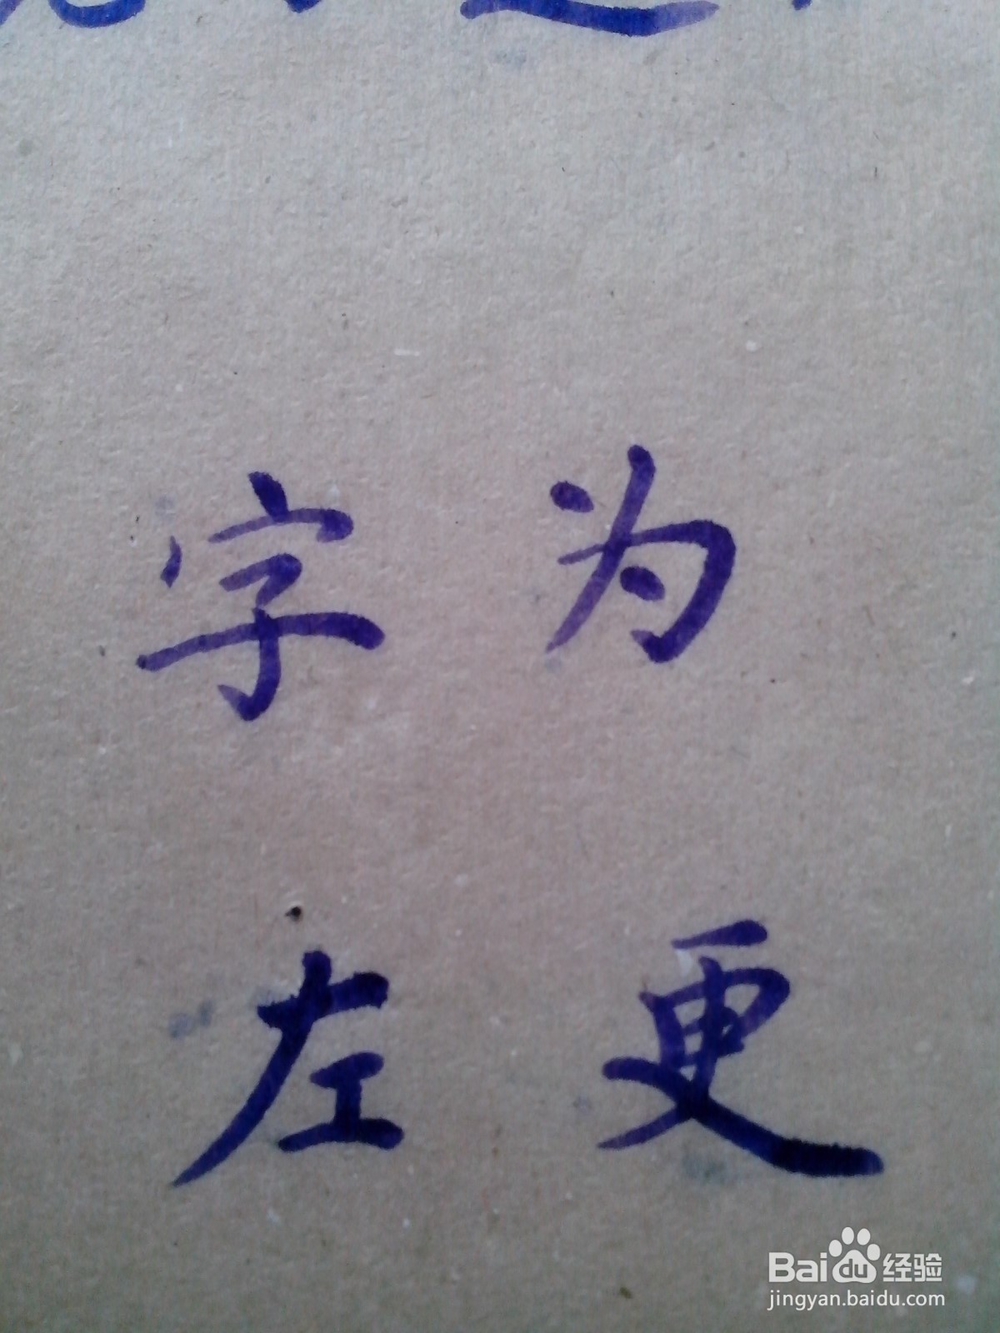 字为
左更
Bai du 经验
jingyan.baidu.com